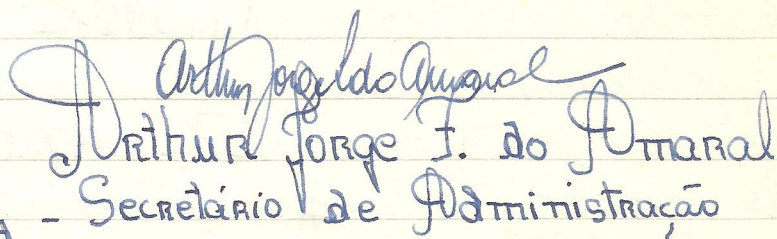 Arthur Jorge F do Amaral
Arthur Jorge F. do Amaral
- Secretário de Administração